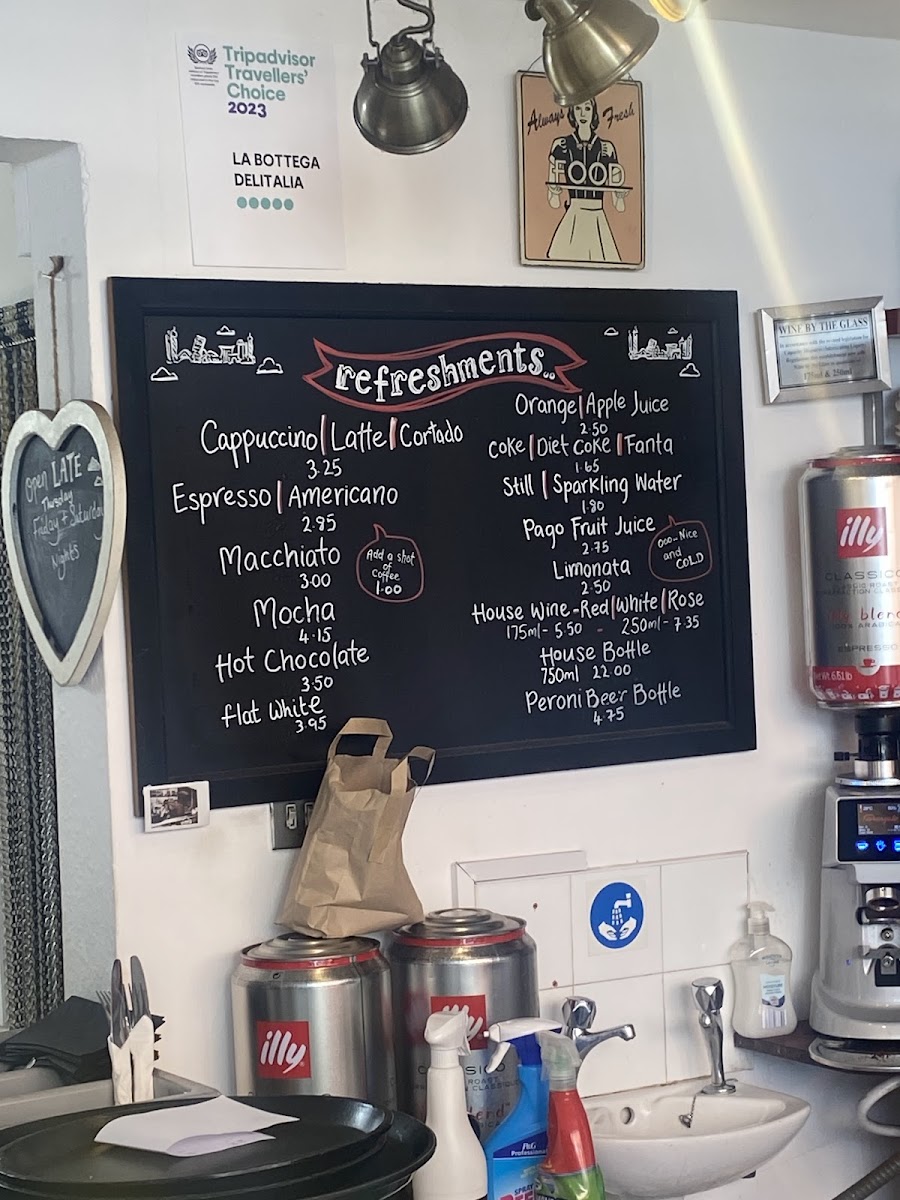 Tripadvisor
Travellers'
Choice
2023
LA BOTTEGA
DELITALIA
Always Fresh
FOOD
WINE BY THE GLASS
175ml & 250ml
Open LATE
Thursday
Friday + Saturday
Nights
refreshments..
Cappuccino | Latte | Cortado
3.25
Espresso | Americano
2.95
Macchiato
3.00
Add a shot
of
Coffee
1.00
Mocha
4.15
Hot Chocolate
3.50
flat White
3.95
Orange | Apple Juice
2.50
Coke | Diet Coke | Fanta
1.65
Still | Sparkling Water
1.80
Pago Fruit Juice
2.75
Limonata
2.50
ooo...Nice
and
COLD
House Wine - Red | White | Rose
175ml - 5.50 - 250ml - 7.35
House Bottle
750ml 22.00
Peroni Beer Bottle
4.75
illy
CLASSICO
CLASSIC ROAST
blend
100% ARABICA
ESPRESSO
illy
illy
CLASSICO
P&G
Professional
SPRAY